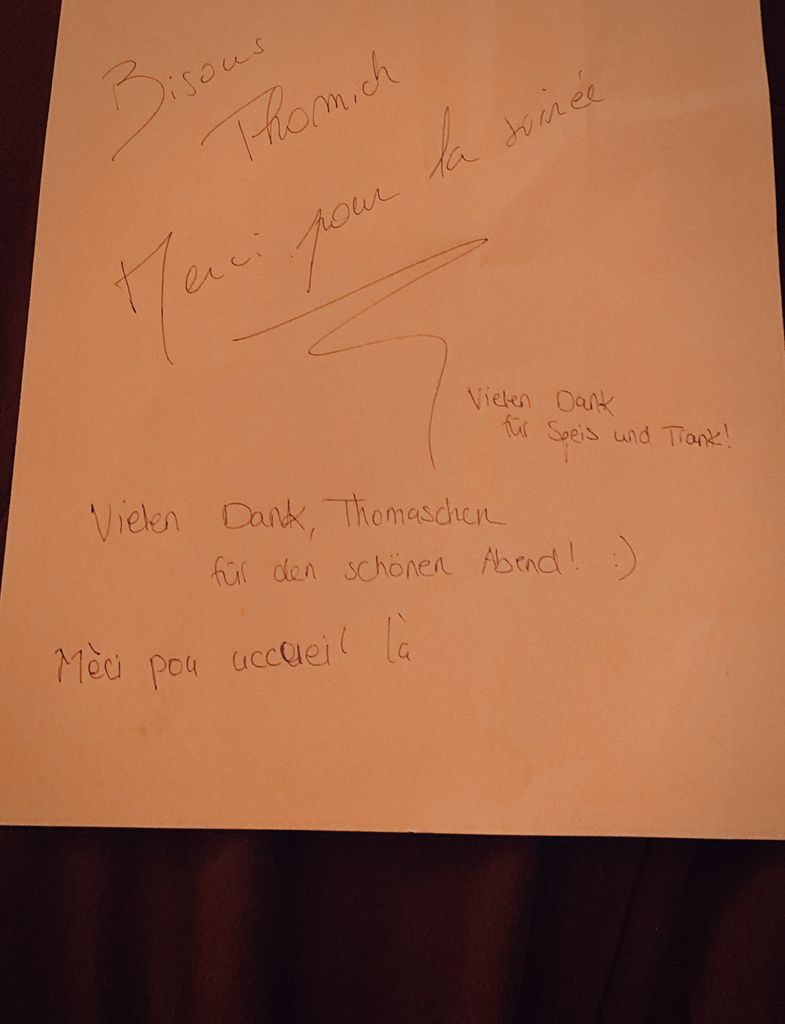 Bisous
Thomich
Merci pour la soirée
Vielen Dank
für Speis und Trank!
Vielen Dank, Thomaschen
für den schönen Abend! :)
Mèci pou accueil là